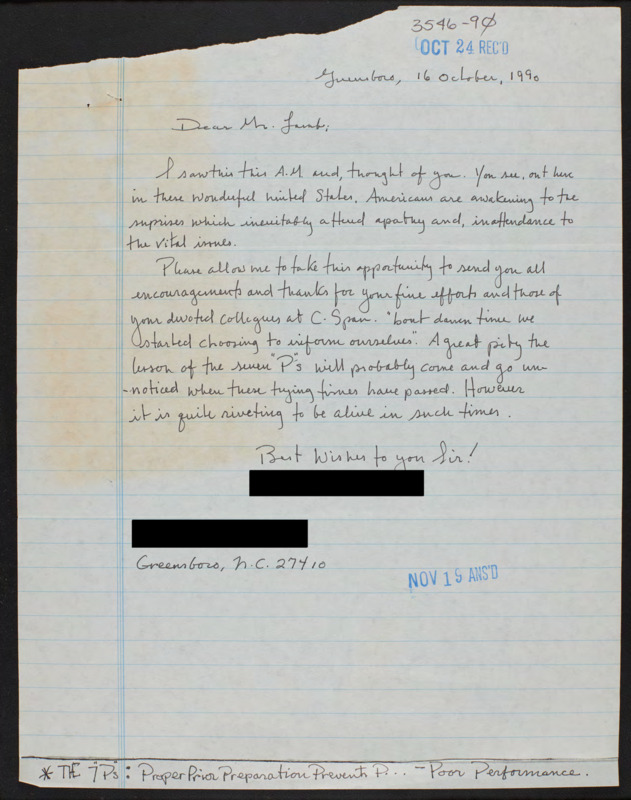 3546-90
OCT 24 REC'D
Greensboro, 16 October, 1990
Dear Mr. Lamb;
I saw this this A.M. and, thought of you. You see, out here
in these wonderful United States, Americans are awakening to the
suprises which inevitably attend apathy and, inattendance to
the vital issues.
Please allow me to take this opportunity to send you all
encouragements and thanks for your fine efforts and those of
your devoted collegues at C-Span. "bout damn time we
started choosing to inform ourselves". A great pity the
lesson of the seven "P"s will probably come and go un-
-noticed when these trying times have passed. However
it is quite riveting to be alive in such times.
Best Wishes to you Sir!
Greensboro, N.C. 27410
NOV 19 ANS'D
* THE "7P's": Proper Prior Preparation Prevents P... - Poor Performance.